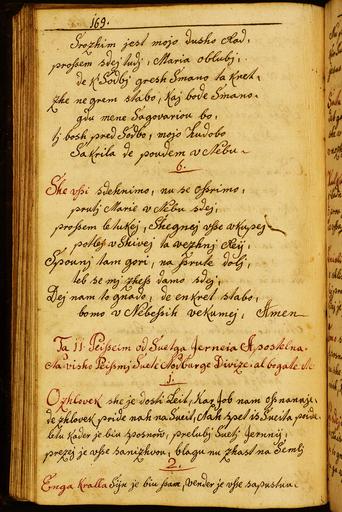 169.
Srozhim jest mojo dusho Rad,
prossem sdej tudj, Maria oblubj,
de k Sodbj gresh Smano ta kret,
zhe ne grem slabo, kaj bode Smano.
gdu mene Sagovariou bo,
tj bosh pred Sodbo, mojo hudobo
Sakrila de poudem v Nebu.
6.
She vsi sdehnimo, nu se osrimo,
prutj Marie v Nebu sdej,
prossem letukej, Shegnej vsse vkupej
potlej vshivej ta vezhnj Rej,
Spounj tam gori, na srute dolj,
teb se mj zhess damo sdej,
Dej nam to gnado, de enkret slabo,
bomo v Nebessih vekumej, Amen
Ta 11 Peissem od Suetga Jerneia Apostelna.
Na visho Peissmj Suete Norburge Divize, al bogate
1.
Ozhlovek she je dosti Leit, kar Job nam osnanuje,
de zhlovek pride nah na Sueit, Nah spet is Sueita,
letu kader je biu sposnou, prelubj Suetj Jernej,
prezej je vsse sanizhvou, blagu nu zhast na Semlj
2.
Enega Kralla Sijn je biu sam, vender je vsse sapustu